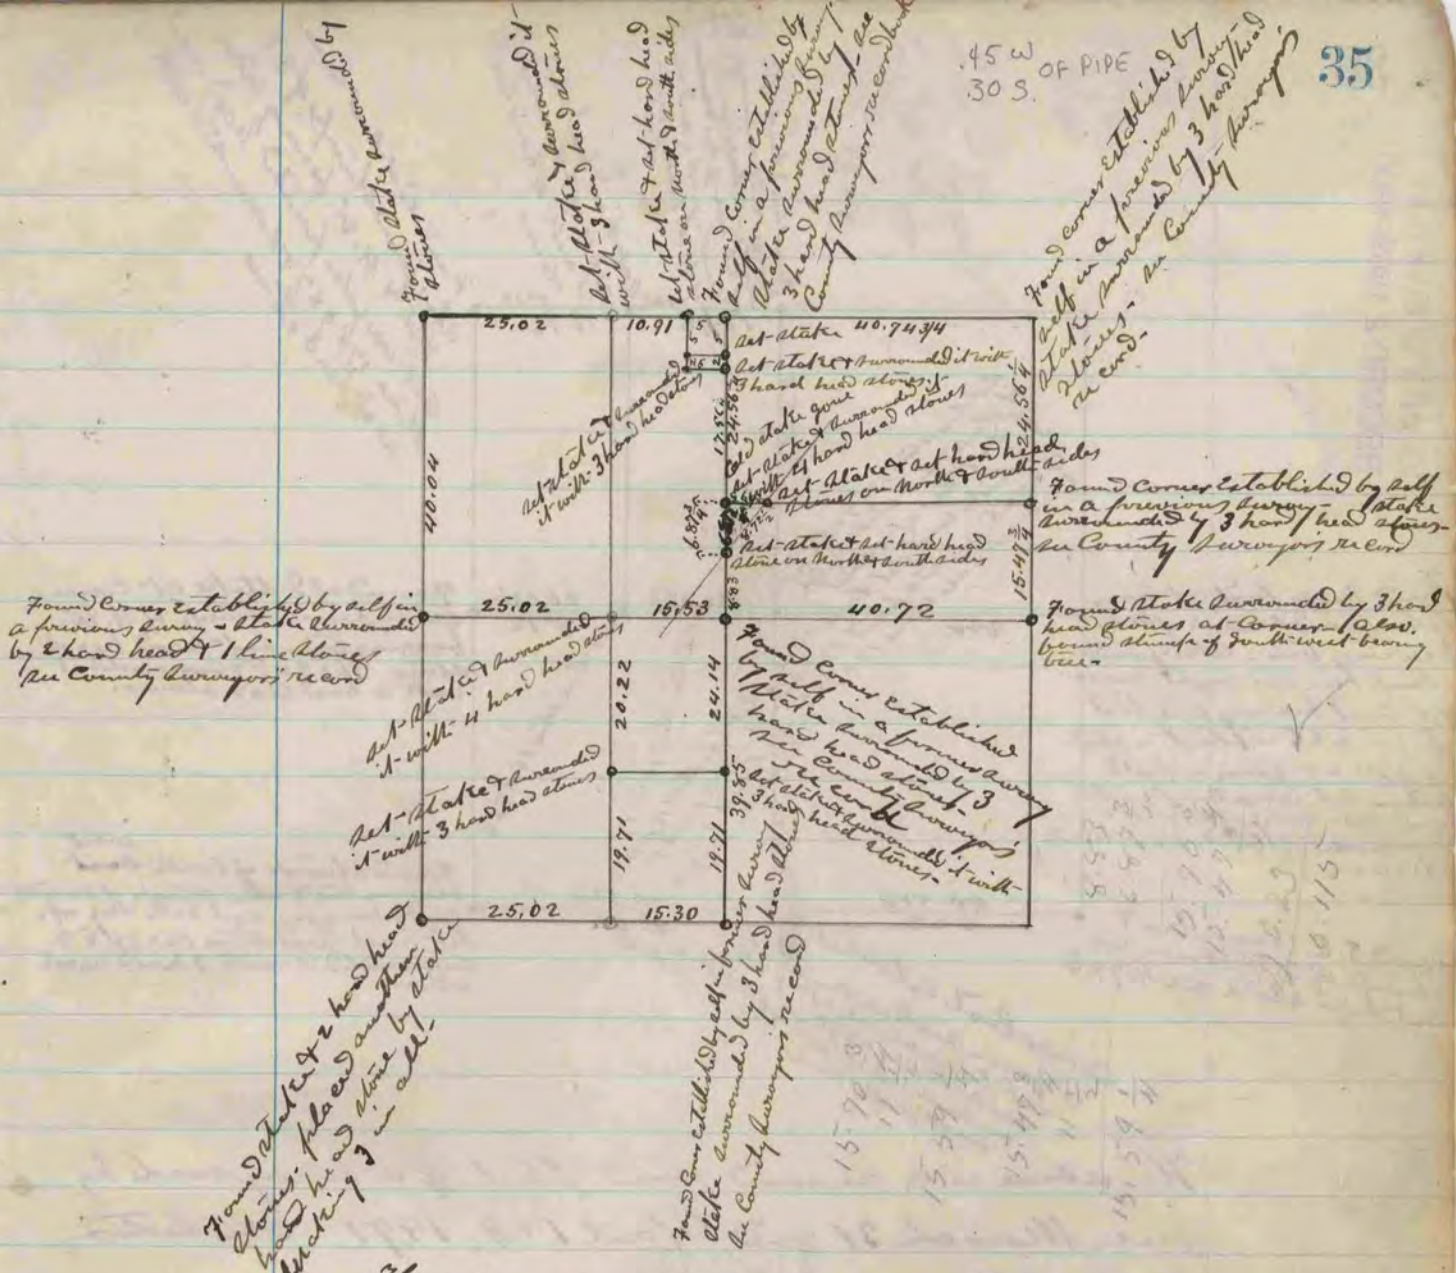 35
.45 W
.30 S. OF PIPE
Found stake surrounded by
stones
set stake & surrounded it
with 3 hard head stones
set stake & set hard head
stone on north & south sides
Found Corner established by
self in a previous survey.
stake surrounded by
3 hard head stones - see
County Surveyors record book
Found corner established by
self in a previous survey-
stake surrounded by 3 hard head
stones - see County Surveyors
record-
25.02
10.91
5
5
5
5
2
40.74 3/4
set stake
set stake & surrounded it with
3 hard head stones
old stake gone
set stake & surrounded it
with 4 hard head stones
set stake & set hard head
stones on north & south sides
set stake & surrounded
it with 3 hard head stones
40.04
24.56 1/4
Found Corner established by self
in a previous survey - stake
surrounded by 3 hard head stones-
see County Surveyors record
set stake & set hard head
stone on north & south sides
15.47 3/4
8.83
Found Corner established by self in
a previous survey - stake surrounded
by 2 hard head & 1 lime stones
see County Surveyors record
25.02
15.53
40.72
Found stake surrounded by 3 hard
head stones at corner. also
found stump of south west bearing
tree-
set stake & surrounded
it with 4 hard head stones
20.22
24.14
Found Corner established
by self in a former survey
stake surrounded by 3
hard head stones-
see County Surveyors
record
set stake & surrounded
it with 3 hard head stones
39.85
set stake & surrounded it with
3 hard head stones-
19.71
19.71
25.02
15.30
Found stake & 2 hard head
stones. placed another
hard head stone by stake
making 3 in all-
Found Corner established by self in former survey
stake surrounded by 3 hard head stones
see County Surveyors record
15.70
15.59
15.47
15.59 1/4